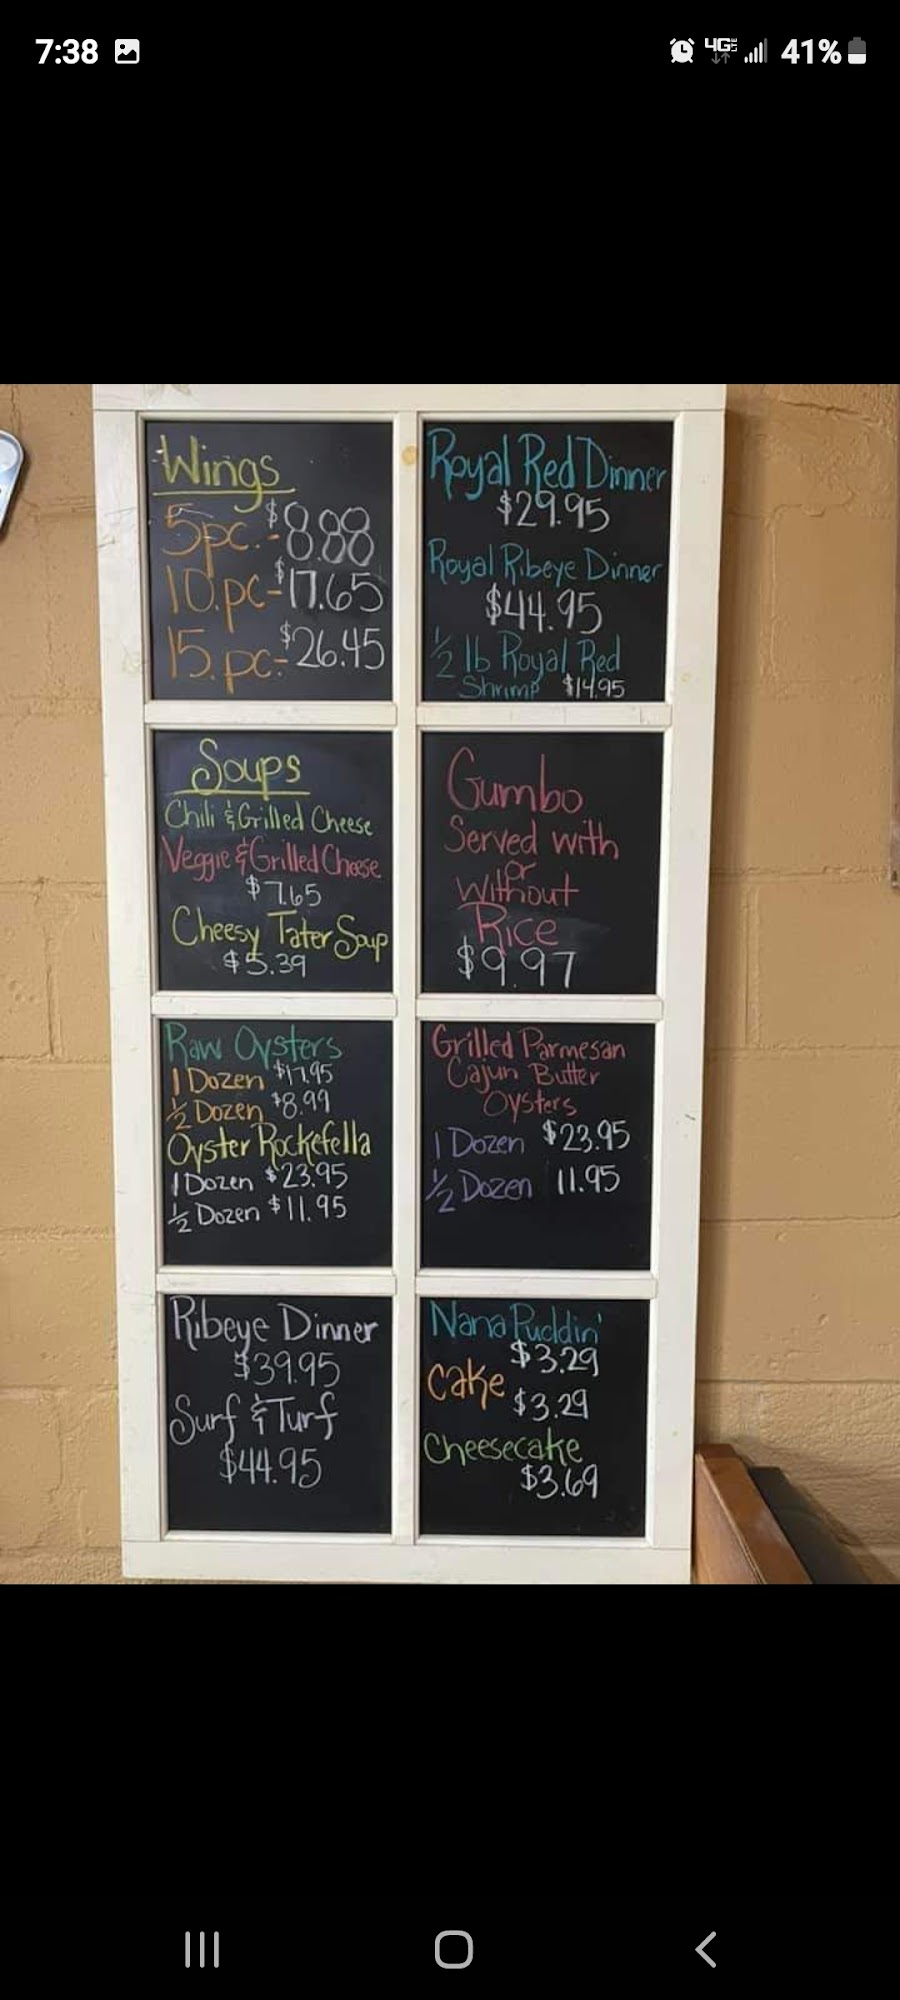 7:38
4G LTE
41%
Wings
5pc.-$8.88
10.pc-$17.65
15.pc.-$26.45
Royal Red Dinner
$29.95
Royal Ribeye Dinner
$44.95
1/2 lb Royal Red
Shrimp $14.95
Soups
Chili & Grilled Cheese
Veggie & Grilled Cheese
$7.65
Cheesy Tater Soup
$5.39
Gumbo
Served with
or
Without
Rice
$9.97
Raw Oysters
1 Dozen $17.95
1/2 Dozen $8.99
Oyster Rockefella
1 Dozen $23.95
1/2 Dozen $11.95
Grilled Parmesan
Cajun Butter
Oysters
1 Dozen $23.95
1/2 Dozen 11.95
Ribeye Dinner
$39.95
Surf & Turf
$44.95
Nana Puddin'
$3.29
Cake
$3.29
Cheesecake
$3.69